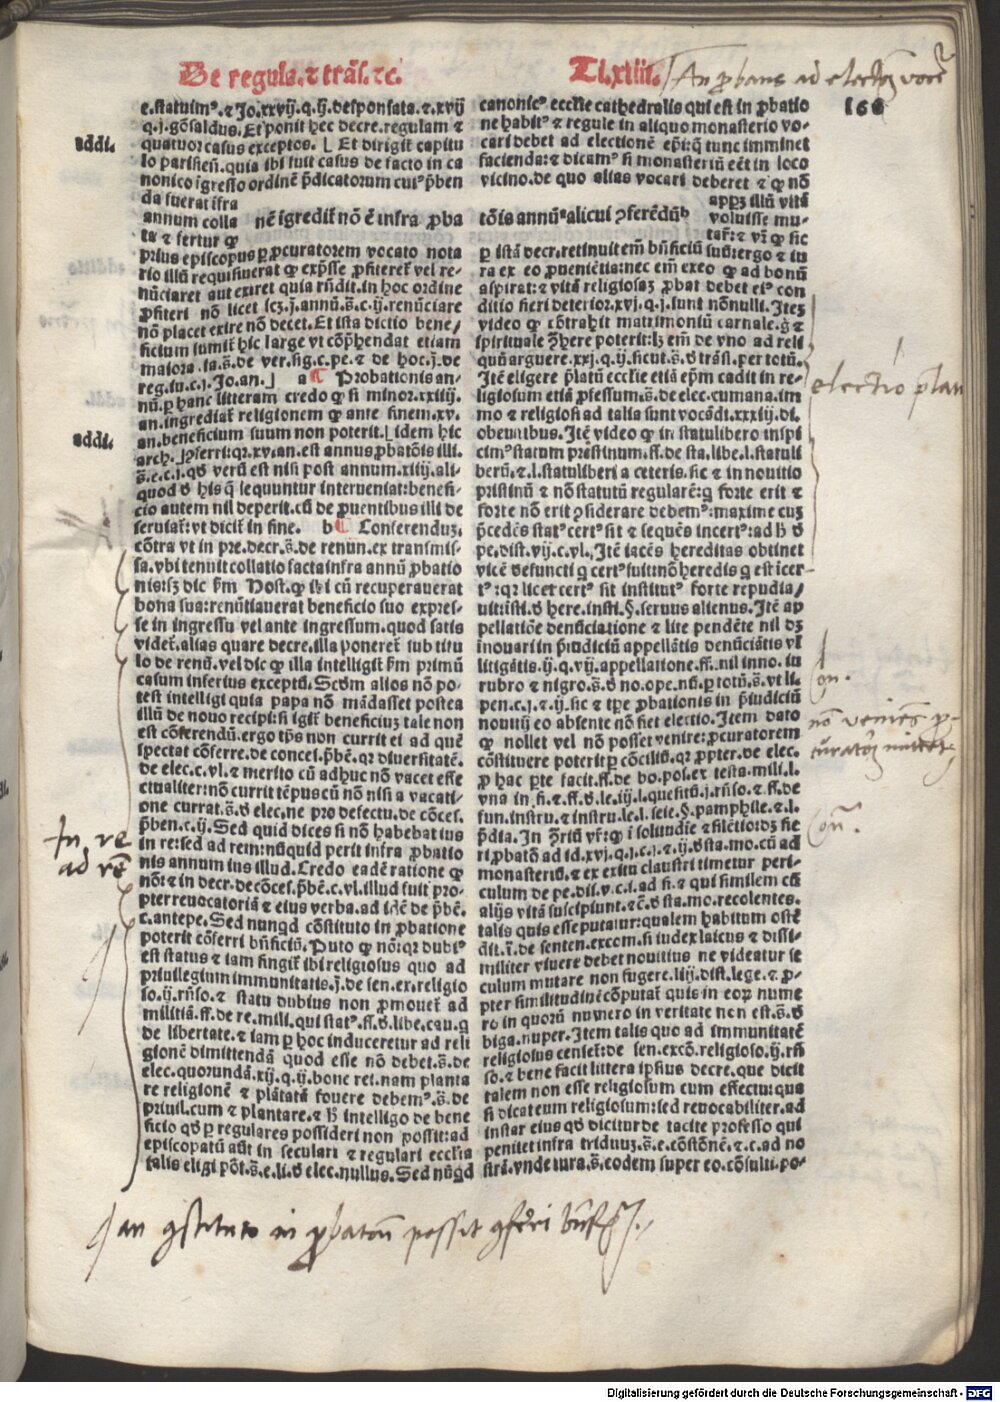 De regula. ⁊ trãs. ⁊c. Ti. xliij.
An ꝓbans ad electõem vocet
166
e. statuimꝰ. ⁊ Jo. xxvij. q. ij. desponsata. ⁊. xvij
q. j. gõsaldus. Et ponit hec decre. regulam ⁊
addi.
quatuor casus exceptos. ⌊ Et dirigit̃ capitu
lo parisieñ. quia ibi fuit casus de facto in ca
nonico ĩgresso ordinẽ p̃dicatorum cuiꝰ p̃ben
da fuerat ĩfra
annum colla
ta ⁊ fertur ꝙ
nẽ ĩgredit̃ nõ ẽ infra ꝓba
prius episcopus ꝑ ꝓcuratorem vocato nota
rio illũ requisiuerat ꝙ exp̃sse ꝓfiteret̃ vel re-
nũciaret aut exiret quia rñdit. in hoc ordine
ꝓfiteri nõ licet
nõ placet exire nõ decet. Et ista dictio bene/
ficium sumit̃ hic large vt cõp̃hendat etiam
maiora. ia. s̃. de ver. sig. c. pe. ⁊ de hoc. j. de
reg. iu. c. j. Jo. an. ⌋ a ¶ Probationis an-
nũ. ꝑ hanc litteram credo ꝙ si minor. xxiiij.
an. ingrediat̃ religionem ꝙ ante finem. xv.
addi.
an. beneficium suum non poterit. ⌊ idem hic
quod ꝺ his q̃ sequuntur interueniat: benefi-
cio autem nil deperit. cũ de ꝓuentibus illi de
seruiat̃: vt dicit̃ in fine. b ¶ Conferenduz.
cõtra vt in pre. decr. s̃. de renũn. ex transmis-
sa. vbi tenuit collatio facta infra annũ ꝓbatio
nis: sz dic ẜm Host. ꝙ ibi cũ recuperauerat
bona sua: renũtiauerat beneficio suo expres-
se in ingressu vel ante ingressum. quod satis
videt̃. alias quare decre. illa poneret̃ sub titu
lo de renũ. vel dic ꝙ illa intelligit̃ ẜm primũ
casum inferius exceptũ. Scďm alios nõ po-
test intelligi quia papa nõ mãdasset postea
illũ de nouo recipi: si igit̃ beneficiuz tale non
est cõferendũ. ergo tp̃s non currit ei ad quẽ
spectat cõferre. de conces. p̃bẽ. qꝛ diuersitatẽ.
de elec. c. vl. ⁊ merito cũ adhuc nõ vacet effe
ctualiter: nõ currit tẽpus cũ nõ nisi a vacati-
one currat. s̃. ꝺ elec. ne pro defectu. de cõces.
p̃ben. c. ij. Sed quid dices si nõ habebat ius
In re
ad rẽ
in re: sed ad rem: nũquid perit infra ꝓbatio
nis annum ius illud. Credo eadẽ ratione ꝙ
nõ: ⁊ in decr. de cõces. p̃bẽ. c. vl. illud fuit pro-
pter reuocatoriã ⁊ eius verba. ad idẽ de p̃bẽ.
c. antepe. Sed nunqd cõstituto in ꝓbatione
poterit cõferri bñficiũ. Puto ꝙ nõ: qꝛ dubiꝰ
est status ⁊ iam fingit̃ ibi religiosus quo ad
priuilegium immunitatis. j. de sen. ex. religio
so. ij. rñso. ⁊ statu dubius non ꝓmouet̃ ad
militiã. ff. de re. mili. qui statꝰ. ff. ꝺ. libe. cau. q
de libertate. ⁊ iam ꝑ hoc induceretur ad reli
gionẽ dimittendã quod esse nõ debet. s̃. de
elec. quorundã. xij. q. ij. bone rei. nam planta
re religionẽ ⁊ plãtatã fouere debemꝰ. s̃. de
priuil. cum ⁊ plantare. ⁊ ħ intelligo de bene
ficio qꝺ ꝑ regulares possideri non possit: ad
episcopatũ aũt in seculari ⁊ regulari ecclia
talis eligi põt. s̃. e. li. ꝺ elec. nullus. Sed nũqd
canonicꝰ ecclie cathedralis qui est in ꝓbatio
ne habitꝰ ⁊ regule in aliquo monasterio vo-
cari debet ad electionẽ ep̃i: q̃ tunc imminet
facienda: ⁊ dicamꝰ si monasteriũ eẽt in loco
vicino. de quo alias vocari deberet ⁊ ꝙ nõ
tõis annũ alicui ꝯferẽdũ
appꝫ illũ vitã
voluisse mu-
tar̃: ⁊ vĩ ꝙ sic
ꝑ istã decr. retinuit em̃ bñficiũ
ra ex eo ꝓueniẽtia: nec em̃ ex eo ꝙ ad bonũ
aspirat: ⁊ vitã religiosaz ꝓbat debet eiꝰ con
ditio fieri deterior. xvj. q. j. sunt nõnulli. Itez
video ꝙ cõtrahit̃ matrimoniũ carnale. g̃ ⁊
electio p̃lati
quñ arguere. xxj. q. ij. sicut. s̃. ꝺ trãsl. per totũ.
Itẽ eligere p̃latũ ecclie etiã ep̃m cadit in re-
ligiosum etiã ꝓfessum. s̃. de elec. cumana. im
mo ⁊ religiosi ad talia sunt vocãdi. xxxiij. di.
obeuntibus. Itẽ video ꝙ in statulibero inspi
cimꝰ statum pristinum. ff. de sta. libe. l. statuli
berũ. ⁊ l. statuliberi a ceteris. sic ⁊ in nouitio
pristinũ ⁊ nõ statutũ regularẽ: q forte erit ⁊
forte nõ erit ꝯsiderare debemꝰ: maxime cuz
p̃cedẽs statꝰ certꝰ sit ⁊ sequẽs incertꝰ: ad ħ ꝺ
pe. dist. vij. c. vl. Itẽ iacẽs hereditas obtinet
vicẽ defuncti q certꝰ fuit: nõ heredis q est icer-
tꝰ: qꝛ licet certꝰ sit institutꝰ forte repudia/
uit: isti. ꝺ here. insti. §. seruus alienus. Itẽ ap
pellatiõe denũciatione ⁊ lite pendẽte nil dꝫ
inouari in p̃iudiciũ appellãtis denũciãtis vl̃
litigãtis. ij. q. vij. appellatione. ff. nil inno. in
rubro ⁊ nigro. s̃. ꝺ no. ope. nũ. ꝑ totũ. s̃. vt li.
on.
pen. c. j. ⁊ ij. sic ⁊ tp̃e ꝓbationis in p̃iudiciũ
nouitij eo absente nõ fiet electio. Item dato
nõ veniẽs ꝓ-
curatorẽ mittet
ꝙ nollet vel nõ posset venire: ꝓcuratorem
cõstituere poterit ꝑ cõciliũ. qꝛ ꝓpter. de elec.
ꝓ hac ꝑte facit. ff. de bo. pos. ex testa. mili. l.
fun. instru. ⁊ instru. le. l. seie. §. pamphile. ⁊. l.
on.
monasteriũ. ⁊ ex exitu claustri timetur peri-
culum de pe. dis. v. c. j. ad fi. ⁊ qui similem cũ
alijs vitã suscipiunt. ⁊ c̃. ꝺ sta. mo. recolentes.
talis quis esse putatur: qualem habitum ostẽ
dit. j̃. de senten. excom. si iudex laicus ⁊ dissi-
militer viuere debet nouitius ne videatur se
culum mutare non fugere. liij. dist. lege. ⁊. ꝓ-
pter similitudinẽ cõputat̃ quis in eoꝝ nume
ro in quorũ numero in veritate non est. s̃. ꝺ
biga. nuper. Item talis quo ad immunitatẽ
religiosus censet̃: de sen. excõ. religioso. ij. rñ
so. ⁊ bene facit littera ipsius decre. que dicit
talem non esse religiosum cum effectu: qua
si dicat eum religiosum: sed reuocabiliter. ad
instar eius qꝺ dicitur de tacite professo qui
penitet infra triduuz. s̃. e. cõstõnẽ. ⁊. c. ad no
strã. vnde iura. s̃. eodem super eo. cõsulti. po-
an ꝯstituto in ꝓbatoñ possit ꝯferri bñfm̃.
Digitalisierung gefördert durch die Deutsche Forschungsgemeinschaft - DFG